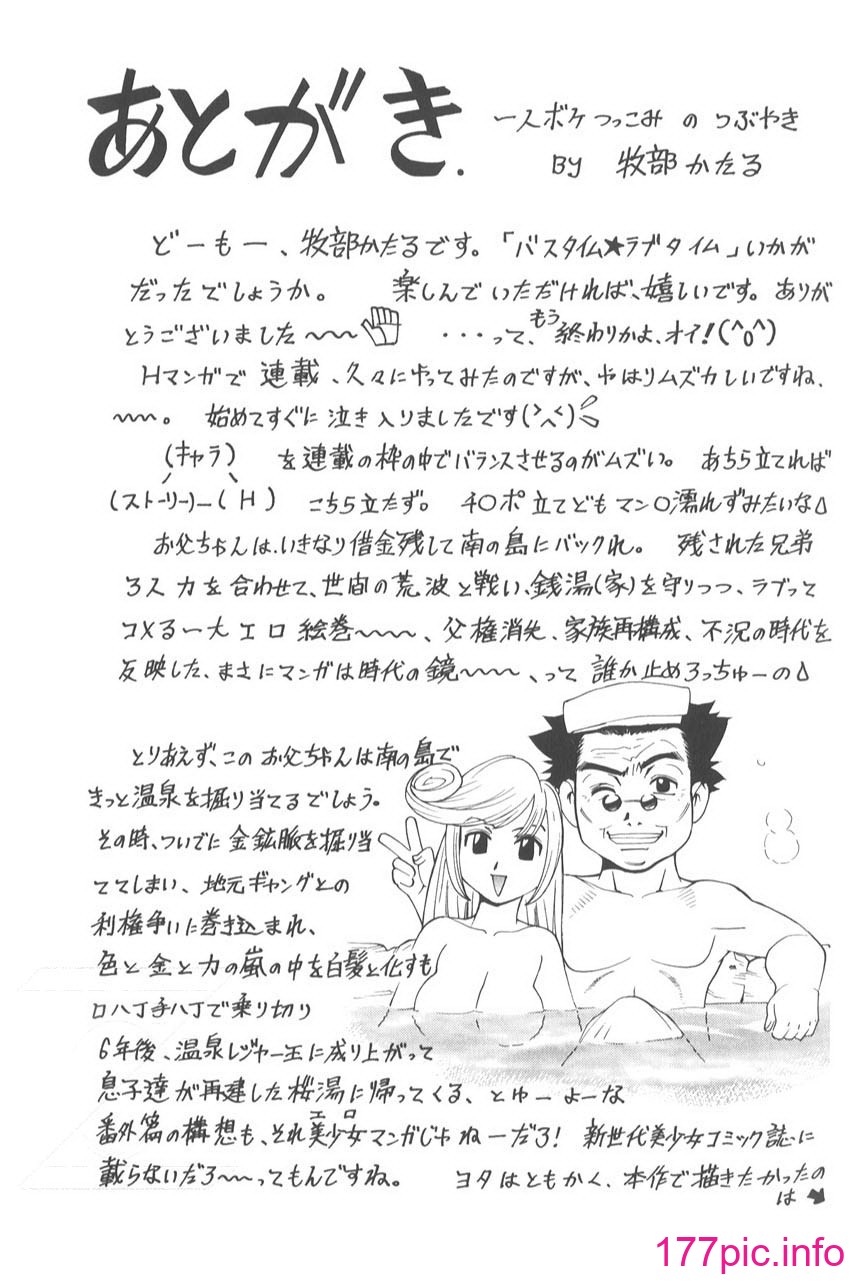 あとがき.
一人ボケつっこみ の つぶやき
BY 牧部かたる
どーもー、牧部かたるです。「バスタイム★ラブタイム」いかが
だったでしょうか。 楽しんでいただければ、嬉しいです。ありが
とうございました〜〜 ・・・って、もう終わりかよ、オイ!(^o^)
Hマンガで連載、久々にやってみたのですが、やはりムズカしいですね、
〜〜。 始めてすぐに泣き入りましたです(>へ<)
(キャラ)
(ストーリー)ー(H)
を連載の枠の中でバランスさせるのがムズい。 あちら立てれば
こちら立たず。 チ〇ポ立てどもマン〇濡れずみたいな
お父ちゃんは、いきなり借金残して南の島にバックれ。 残された兄弟
3人力を合わせて、世間の荒波と戦い、銭湯(家)を守りつつ、ラブって
コメる一大エロ絵巻〜〜〜、父権消失、家族再構成、不況の時代を
反映した、まさにマンガは時代の鏡〜〜〜、って 誰か止めろっちゅーの
とりあえず、このお父ちゃんは南の島で
きっと温泉を掘り当てるでしょう。
その時、ついでに金鉱脈を掘り当
ててしまい、地元ギャングとの
利権争いに巻き込まれ、
色と金と力の嵐の中を白髪と化すも
口八丁手八丁で乗り切り
6年後、温泉レジャー王に成り上がって
息子達が再建した桜湯に帰ってくる、とゅーよーな
番外篇の構想も、それ美少女マンガじゃねーだろ! 新世代美少女コミック誌に
エロ
載らないだろ〜〜ってもんですね。 ヨタはともかく、本作で描きたかったの
は
177pic.info